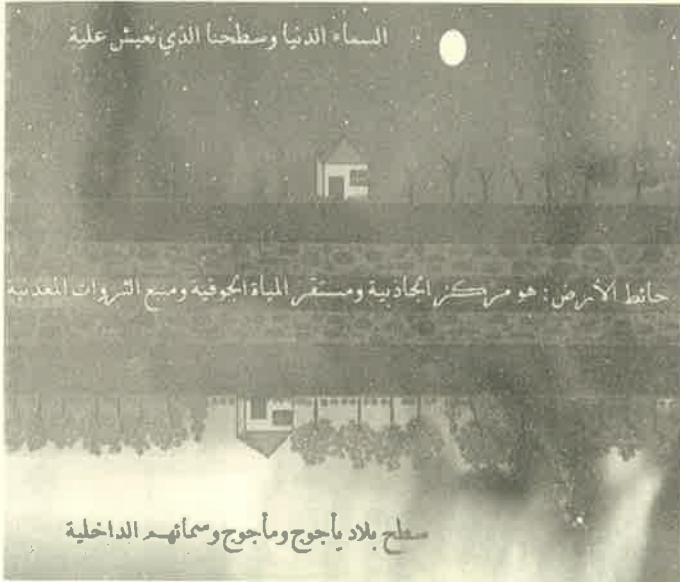 السماء الدنيا وسطحنا الذي نعيش علية
حائط الأرض: هو مركز الجاذبية ومستقر المياة الجوفية ومنبع الثروات المعدنية
سطح بلاد يأجوج ومأجوج وسمائهم الداخلية